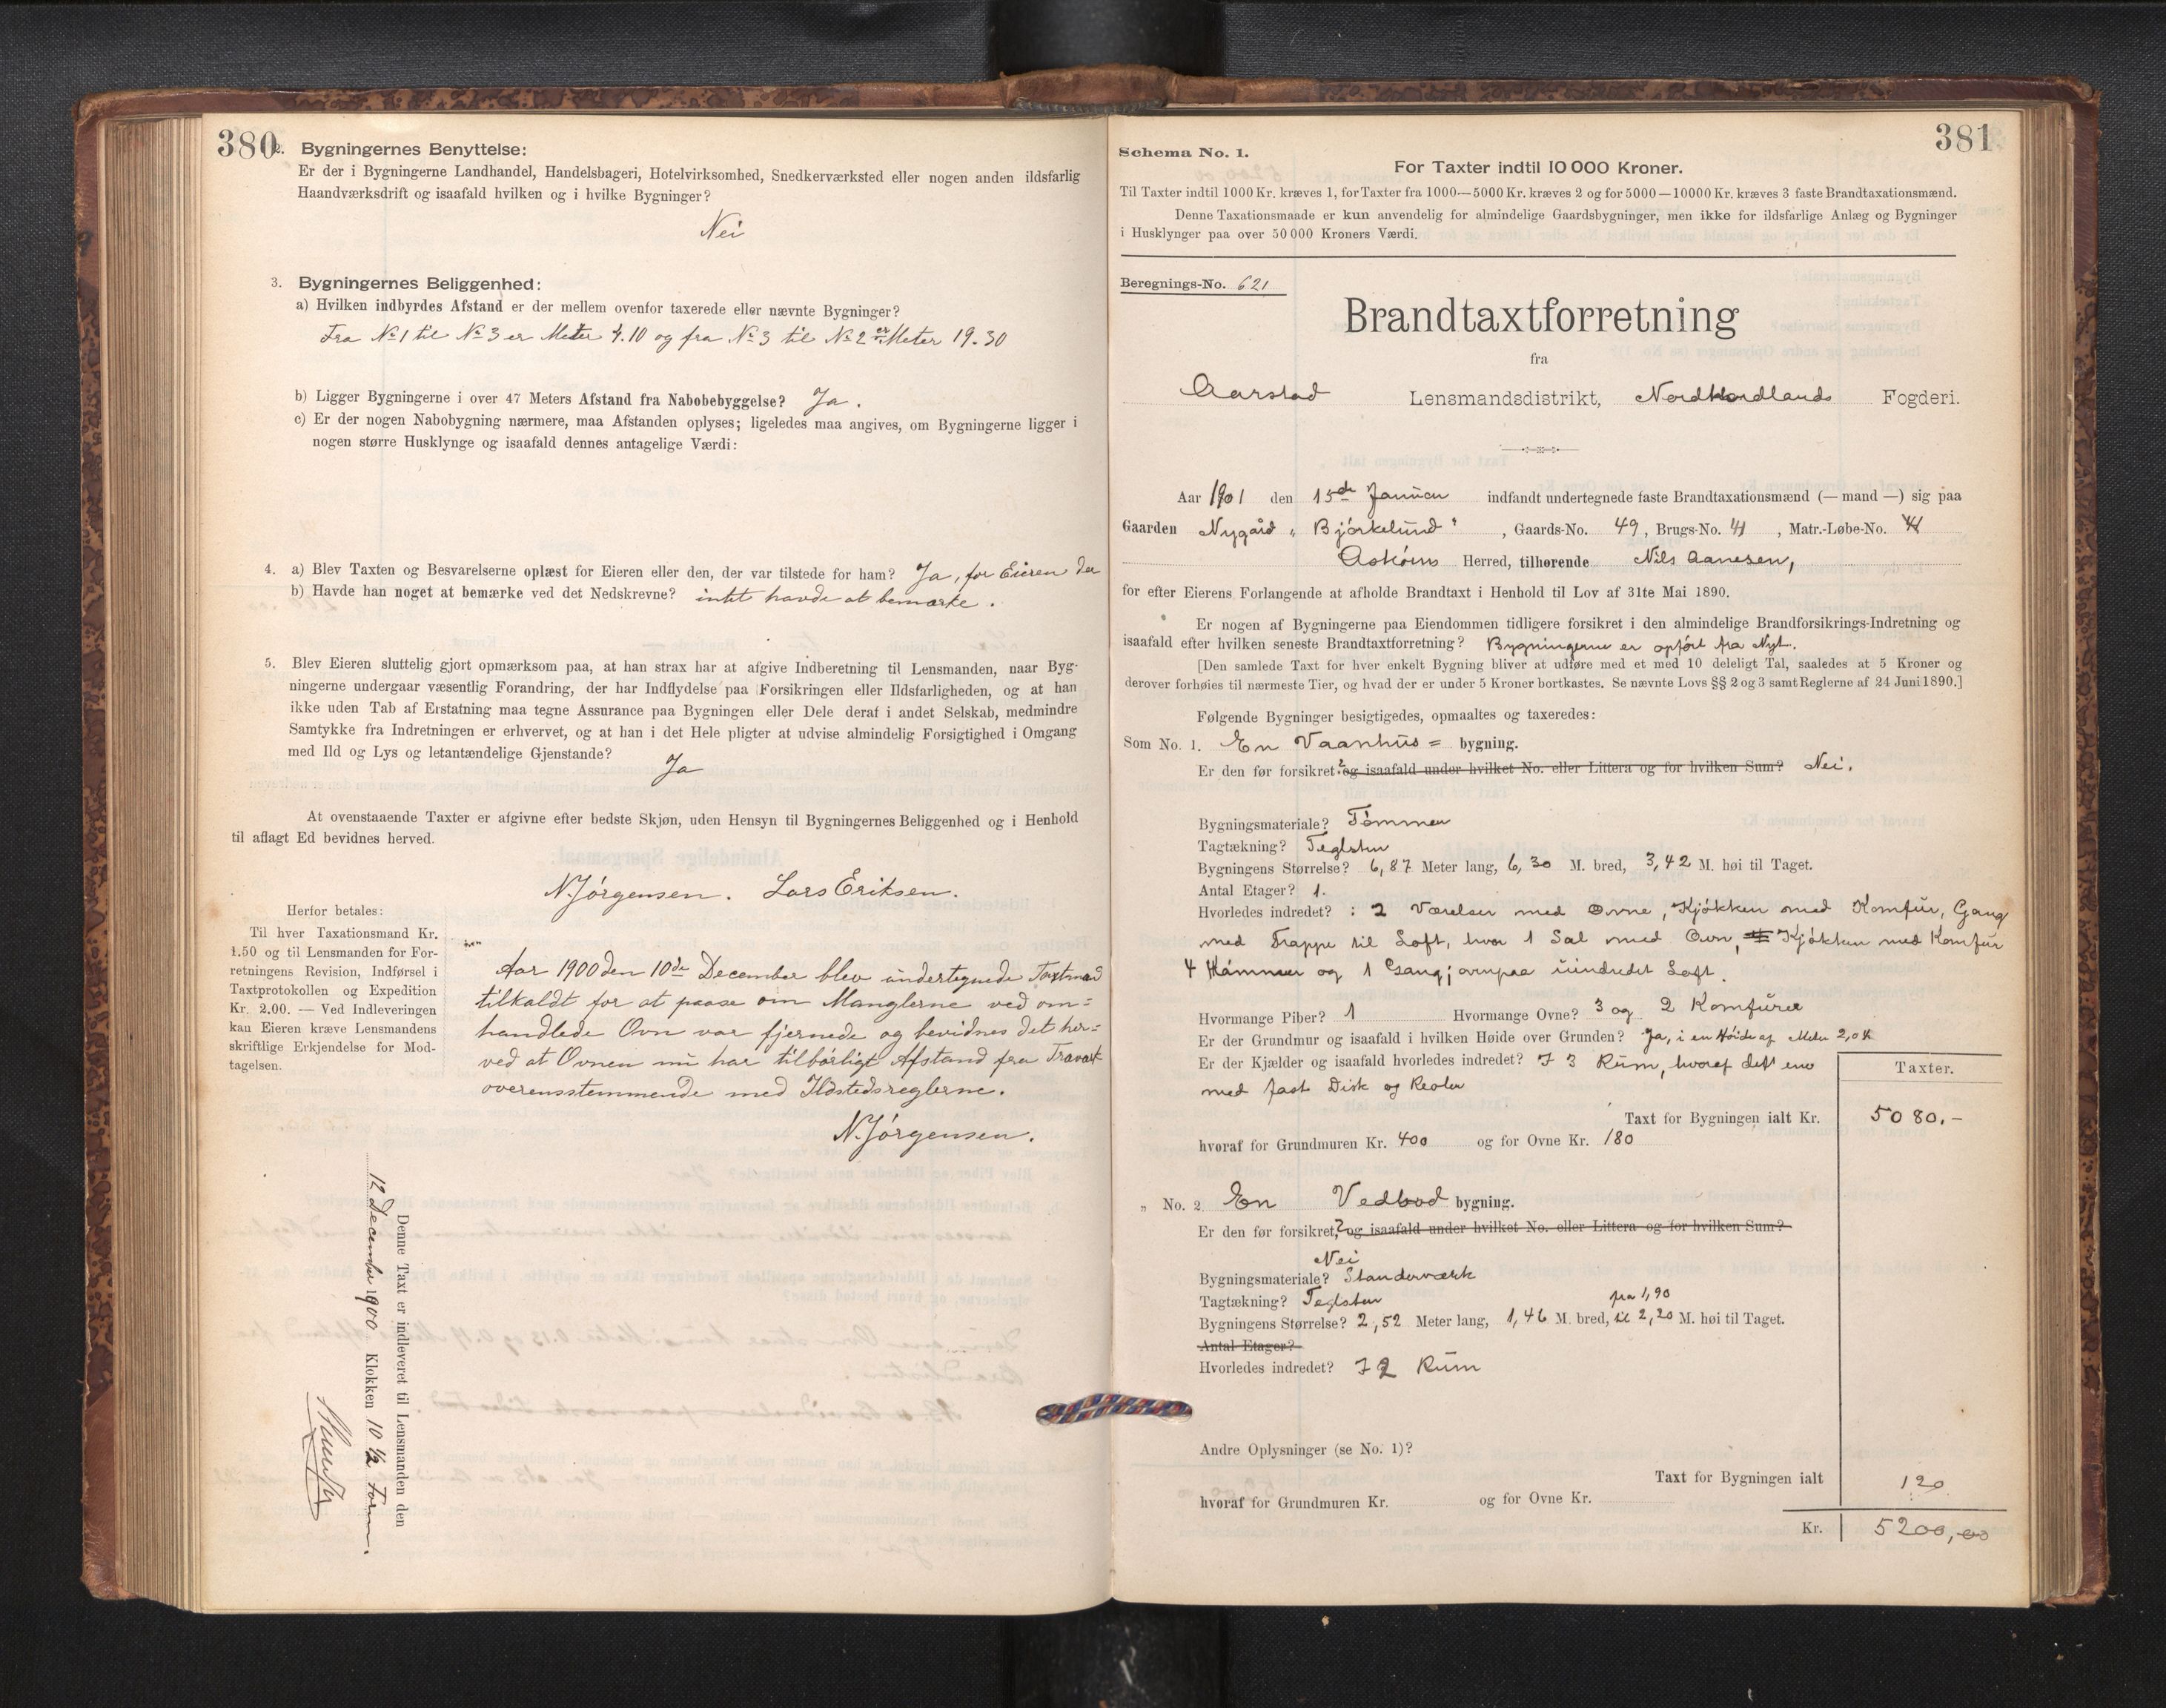 380
2. Bygningernes Benyttelse:
Er der i Bygningerne Landhandel, Handelsbageri, Hotelvirksomhed, Snedkerværksted eller nogen anden ildsfarlig
Haandværksdrift og isaafald hvilken og i hvilke Bygninger?
Nei
3. Bygningernes Beliggenhed:
a) Hvilken indbyrdes Afstand er der mellem ovenfor taxerede eller nævnte Bygninger?
Fra No 1 til No 3 er Meter 4.10 og fra No 3 til No 2 er Meter 19.30
b) Ligger Bygningerne i over 47 Meters Afstand fra Nabobebyggelse? Ja.
c) Er der nogen Nabobygning nærmere, maa Afstanden oplyses; ligeledes maa angives, om Bygningerne ligger i
nogen større Husklynge og isaafald dennes antagelige Værdi:
4. a) Blev Taxten og Besvarelserne oplæst for Eieren eller den, der var tilstede for ham? Ja, for Eieren der
b) Havde han noget at bemærke ved det Nedskrevne? intet havde at bemærke.
5. Blev Eieren sluttelig gjort opmærksom paa, at han strax har at afgive Indberetning til Lensmanden, naar Byg-
ningerne undergaar væsentlig Forandring, der har Indflydelse paa Forsikringen eller Ildsfarligheden, og at han
ikke uden Tab af Erstatning maa tegne Assurance paa Bygningen eller Dele deraf i andet Selskab, medmindre
Samtykke fra Indretningen er erhvervet, og at han i det Hele pligter at udvise almindelig Forsigtighed i Omgang
med Ild og Lys og letantændelige Gjenstande?
Ja
At ovenstaaende Taxter er afgivne efter bedste Skjøn, uden Hensyn til Bygningernes Beliggenhed og i Henhold
til aflagt Ed bevidnes herved.
N. Jörgensen. Lars Eriksen.
Herfor betales:
Til hver Taxationsmand Kr.
1.50 og til Lensmanden for For-
retningens Revision, Indførsel i
Taxtprotokollen og Expedition
Kr. 2.00. — Ved Indleveringen
kan Eieren kræve Lensmandens
skriftlige Erkjendelse for Mod-
tagelsen.
Aar 1900 den 10de December blev undertegnede Taxtmand
tilkaldt for at paase om Manglerne ved om=
handlede Ovn var fjernede og bevidnes det her=
ved at Ovnen nu har tilbörligt Afstand fra Trævæk
overensstemmende med Ildstedsreglerne.
N. Jörgensen.
Denne Taxt er indleveret til Lensmanden den
12 December 1900 Klokken 10 1/2 Form.
381
Schema No. 1.
For Taxter indtil 10 000 Kroner.
Til Taxter indtil 1000 Kr. kræves 1, for Taxter fra 1000—5000 Kr. kræves 2 og for 5000—10000 Kr. kræves 3 faste Brandtaxationsmænd.
Denne Taxationsmaade er kun anvendelig for almindelige Gaardsbygninger, men ikke for ildsfarlige Anlæg og Bygninger
i Husklynger paa over 50 000 Kroners Værdi.
Beregnings-No. 621
Brandtaxtforretning
fra
Aarstad Lensmandsdistrikt, Nordhordlands Fogderi.
Aar 1901 den 15de Januar indfandt undertegnede faste Brandtaxationsmænd (— mand —) sig paa
Gaarden Nygård „ Björkelund " , Gaards-No. 49, Brugs-No. 41 , Matr.-Løbe-No.
Askøens Herred, tilhørende Nils Aanesen,
for efter Eierens Forlangende at afholde Brandtaxt i Henhold til Lov af 31te Mai 1890.
Er nogen af Bygningerne paa Eiendommen tidligere forsikret i den almindelige Brandforsikrings-Indretning og
isaafald efter hvilken seneste Brandtaxtforretning? Bygningerne er opfört fra Nyt.
[Den samlede Taxt for hver enkelt Bygning bliver at udføre med et med 10 deleligt Tal, saaledes at 5 Kroner og
derover forhøies til nærmeste Tier, og hvad der er under 5 Kroner bortkastes. Se nævnte Lovs §§ 2 og 3 samt Reglerne af 24 Juni 1890.]
Følgende Bygninger besigtigedes, opmaaltes og taxeredes:
Som No. 1. En Vaanhus = bygning.
Er den før forsikret? og isaafald under hvilket No. eller Littera og for hvilken Sum? Nei.
Bygningsmateriale? Tömmer
Tagtækning? Teglsten
Bygningens Størrelse? 6,87 Meter lang, 6,30 M. bred, 3,42 M. høi til Taget.
Antal Etager? 1.
Hvorledes indredet? : 2 Værelser med Ovne, Kjökken med Komfur, Gang
med Trappe til Loft, hvor 1 Sal med Ovn, Kjökken med Komfur
4 Kammer og 1 Gang; ovnpaa uindredet Loft.
Hvormange Piber? 1 Hvormange Ovne? 3 og 2 Komfurer
Er der Grundmur og isaafald i hvilken Høide over Grunden? Ja, i en Høide af Meter 2,04
Er der Kjælder og isaafald hvorledes indredet? I 3 Rum, hvoraf det ene
med fast Disk og Reoler
Taxter.
Taxt for Bygningen ialt Kr. 5080.-
hvoraf for Grundmuren Kr. 400 og for Ovne Kr. 180
„ No. 2. En Vedbod bygning.
Er den før forsikret,? og isaafald under hvilket No. eller Littera og for hvilken Sum?
Nei
Bygningsmateriale? Standerværk
Tagtækning? Teglsten
fra 1,90
Bygningens Størrelse? 2,52 Meter lang, 1,46 M. bred, til 2,20 M. høi til Taget.
Antal Etager?
Hvorledes indredet? I 2 Rum
Andre Oplysninger (se No. 1)?
Taxt for Bygningen ialt 120
hvoraf for Grundmuren Kr. og for Ovne Kr.
Kr. 5200,00